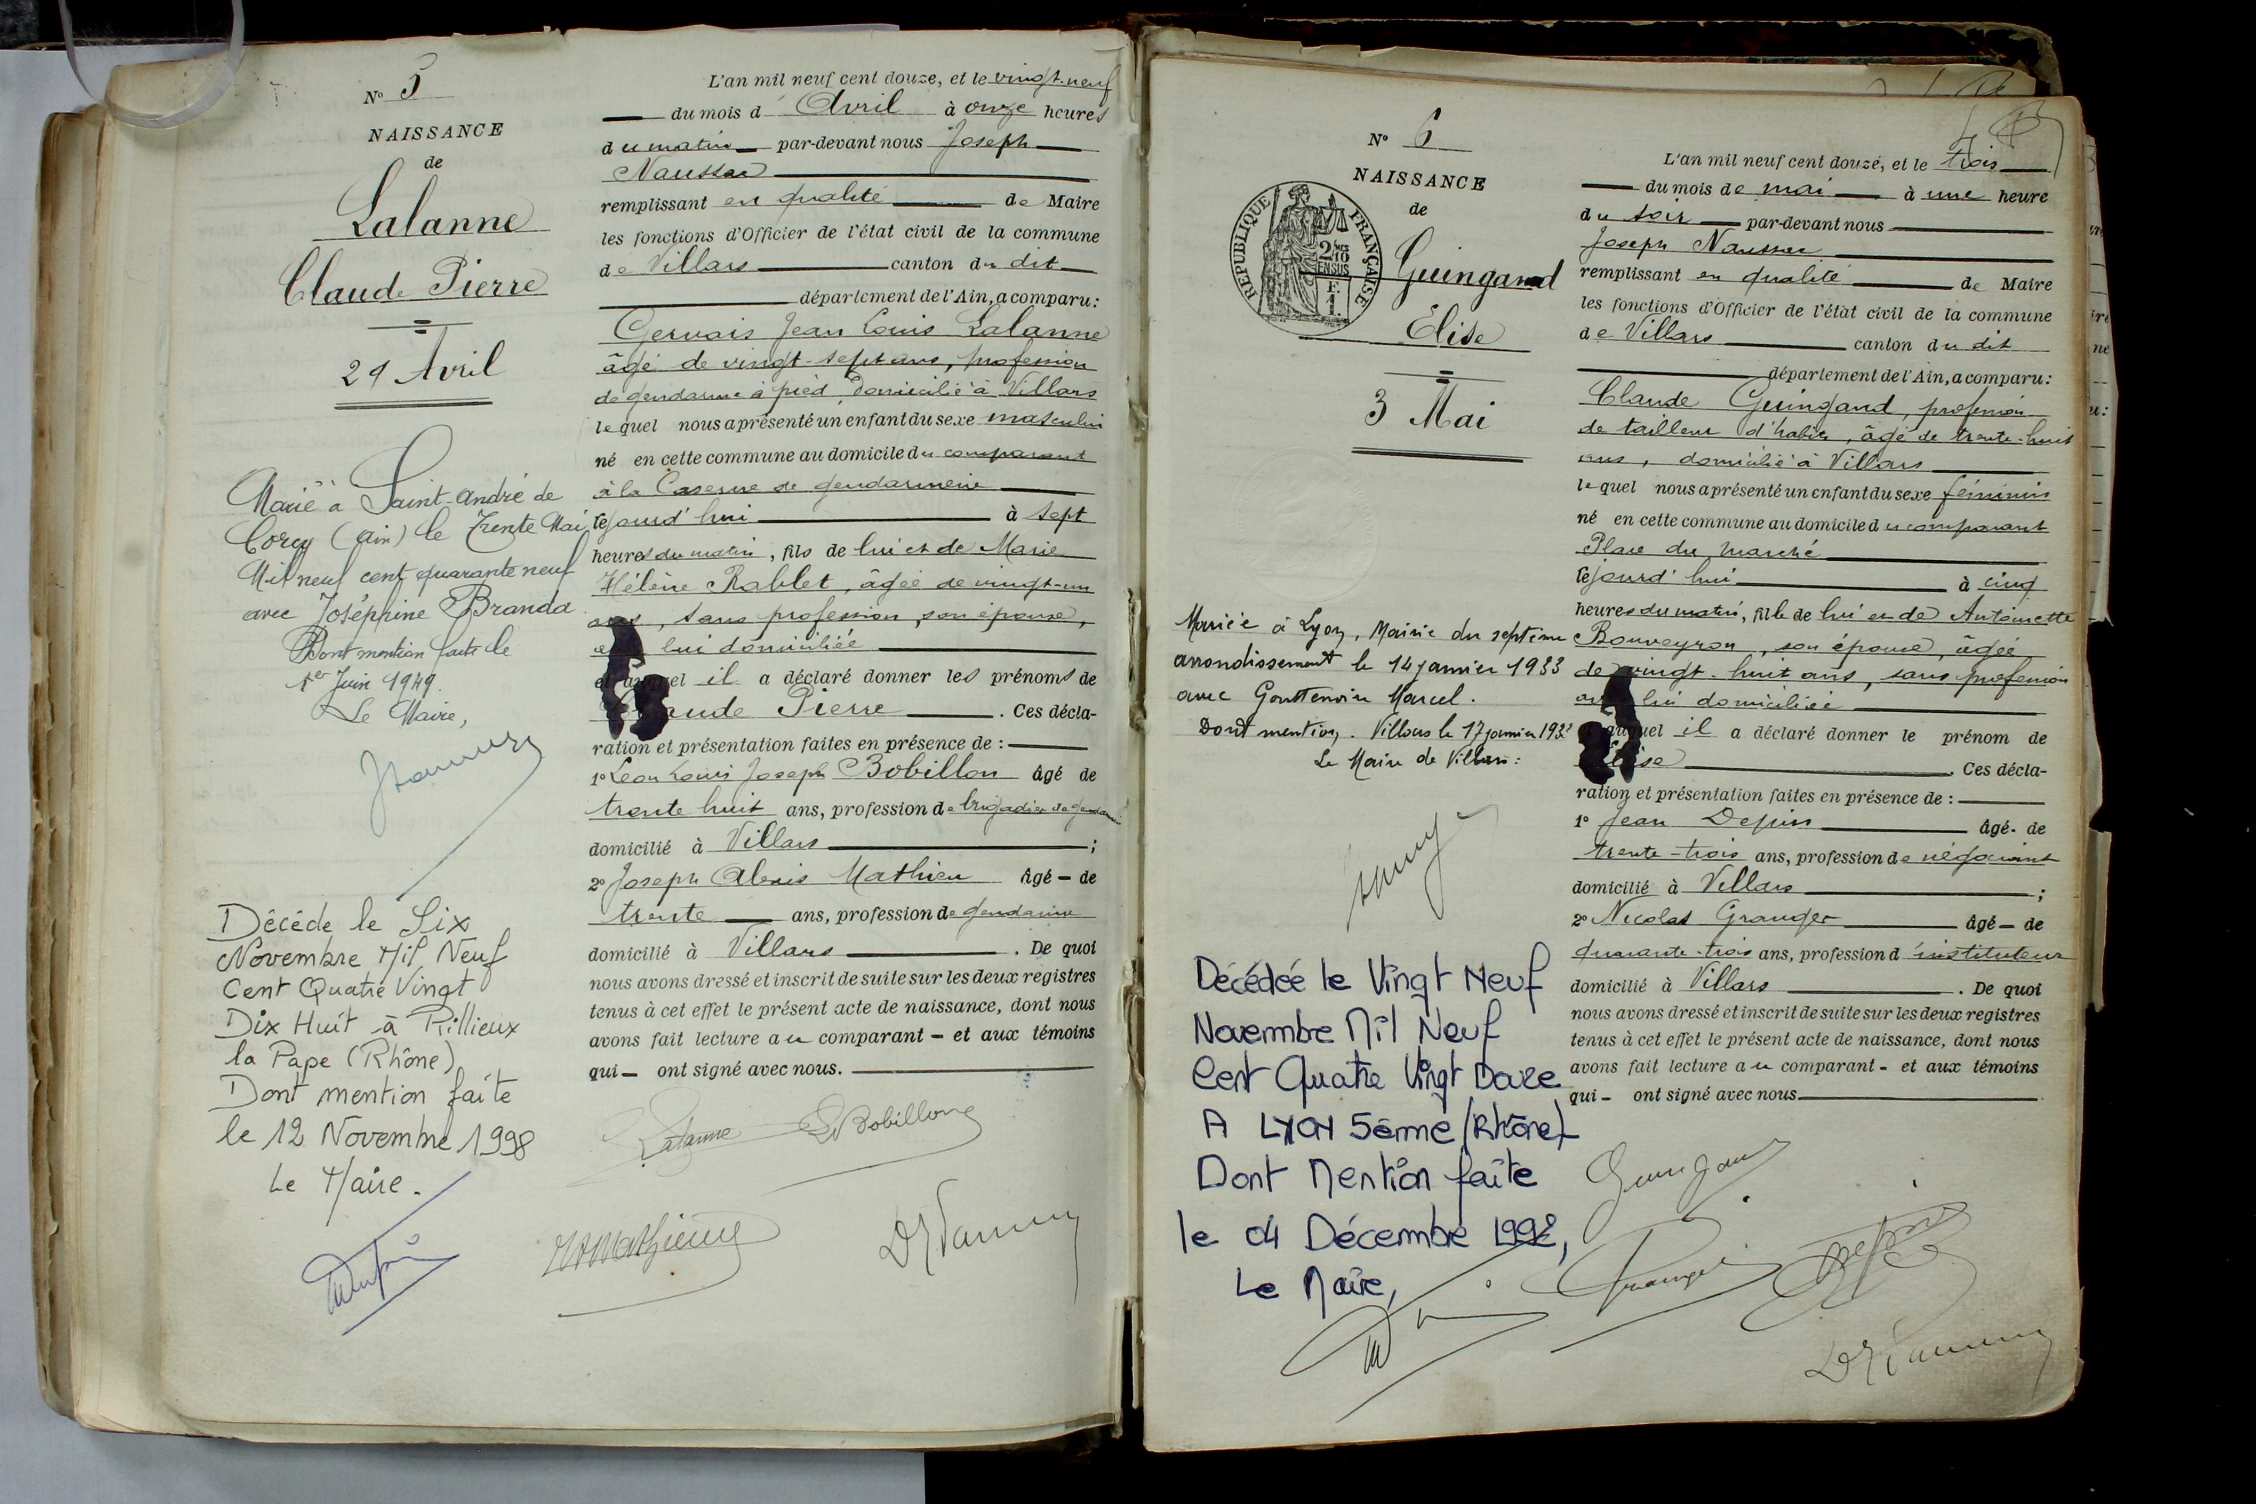 N° 5
NAISSANCE
de
Lalanne
Claude Pierre
29 Avril
Marié à Saint-André de
Corcy (Ain) le Trente Mai
Mil neuf cent quarante neuf
avec Joséphine Branda
Dont mention faite le
1er Juin 1949.
Le Maire,
Décédé le Six
Novembre Mil Neuf
Cent Quatre Vingt
Dix Huit à Rillieux
la Pape (Rhône)
Dont mention faite
le 12 Novembre 1998
Le Maire.
L'an mil neuf cent douze, et le vingt-neuf
du mois d'Avril à onze heures
du matin par-devant nous Joseph
remplissant en qualité de Maire
les fonctions d'Officier de l'état civil de la commune
de Villars canton du dit
département de l'Ain, a comparu:
Gervais Jean Louis Lalanne
âgé de vingt-sept ans, profession
de gendarme à pied, domicilié à Villars
lequel nous a présenté un enfant du sexe masculin
né en cette commune au domicile du comparant
à la Caserne de gendarmerie
cejourd'hui à sept
heures du matin, fils de lui et de Marie
Hélène Rablet, âgée de vingt-un
ans, sans profession, son épouse,
lui domiciliée
et auquel il a déclaré donner les prénoms de
Claude Pierre. Ces décla-
ration et présentation faites en présence de:
1° Léon Louis Joseph Bobillon âgé de
trente huit ans, profession de brigadier de gendarmerie
domicilié à Villars;
2° Joseph Alexis Mathieu âgé de
trente ans, profession de gendarme
domicilié à Villars. De quoi
nous avons dressé et inscrit de suite sur les deux registres
tenus à cet effet le présent acte de naissance, dont nous
avons fait lecture au comparant - et aux témoins
qui - ont signé avec nous.
Lalanne Bobillon
Mathieu
N° 6
NAISSANCE
de
REPUBLIQUE FRANÇAISE
2/10 EN SUS
F. 1.
Guingand
Elise
3 Mai
Mariée à Lyon, Mairie du septième
arrondissement le 14 janvier 1933
avec Gouttenoire Marcel.
Dont mention. Villars le 17 janvier 1933
Le Maire de Villars:
Décédée le Vingt Neuf
Novembre Mil Neuf
Cent Quatre Vingt Douze
A LYON 5ème (Rhône)
Dont Mention faîte
le 04 Décembre 1992,
Le Maire,
L'an mil neuf cent douze, et le trois
du mois de mai à une heure
du soir par-devant nous
Joseph
remplissant en qualité de Maire
les fonctions d'Officier de l'état civil de la commune
de Villars canton du dit
département de l'Ain, a comparu:
Claude Guingand, profession
de tailleur d'habits, âgé de trente-huit
ans, domicilié à Villars
lequel nous a présenté un enfant du sexe féminin
né en cette commune au domicile du comparant
Place du Marché
cejourd'hui à cinq
heures du matin, fille de lui et de Antoinette
Bouveyron, son épouse, âgée
de vingt-huit ans, sans profession
lui domiciliée
auquel il a déclaré donner le prénom de
Elise. Ces décla-
ration et présentation faites en présence de:
1° Jean Depin âgé de
trente-trois ans, profession de négociant
domicilié à Villars;
2° Nicolas Granger âgé de
quarante-trois ans, profession d'instituteur
domicilié à Villars. De quoi
nous avons dressé et inscrit de suite sur les deux registres
tenus à cet effet le présent acte de naissance, dont nous
avons fait lecture au comparant - et aux témoins
qui - ont signé avec nous
Guingand
Granger Depin